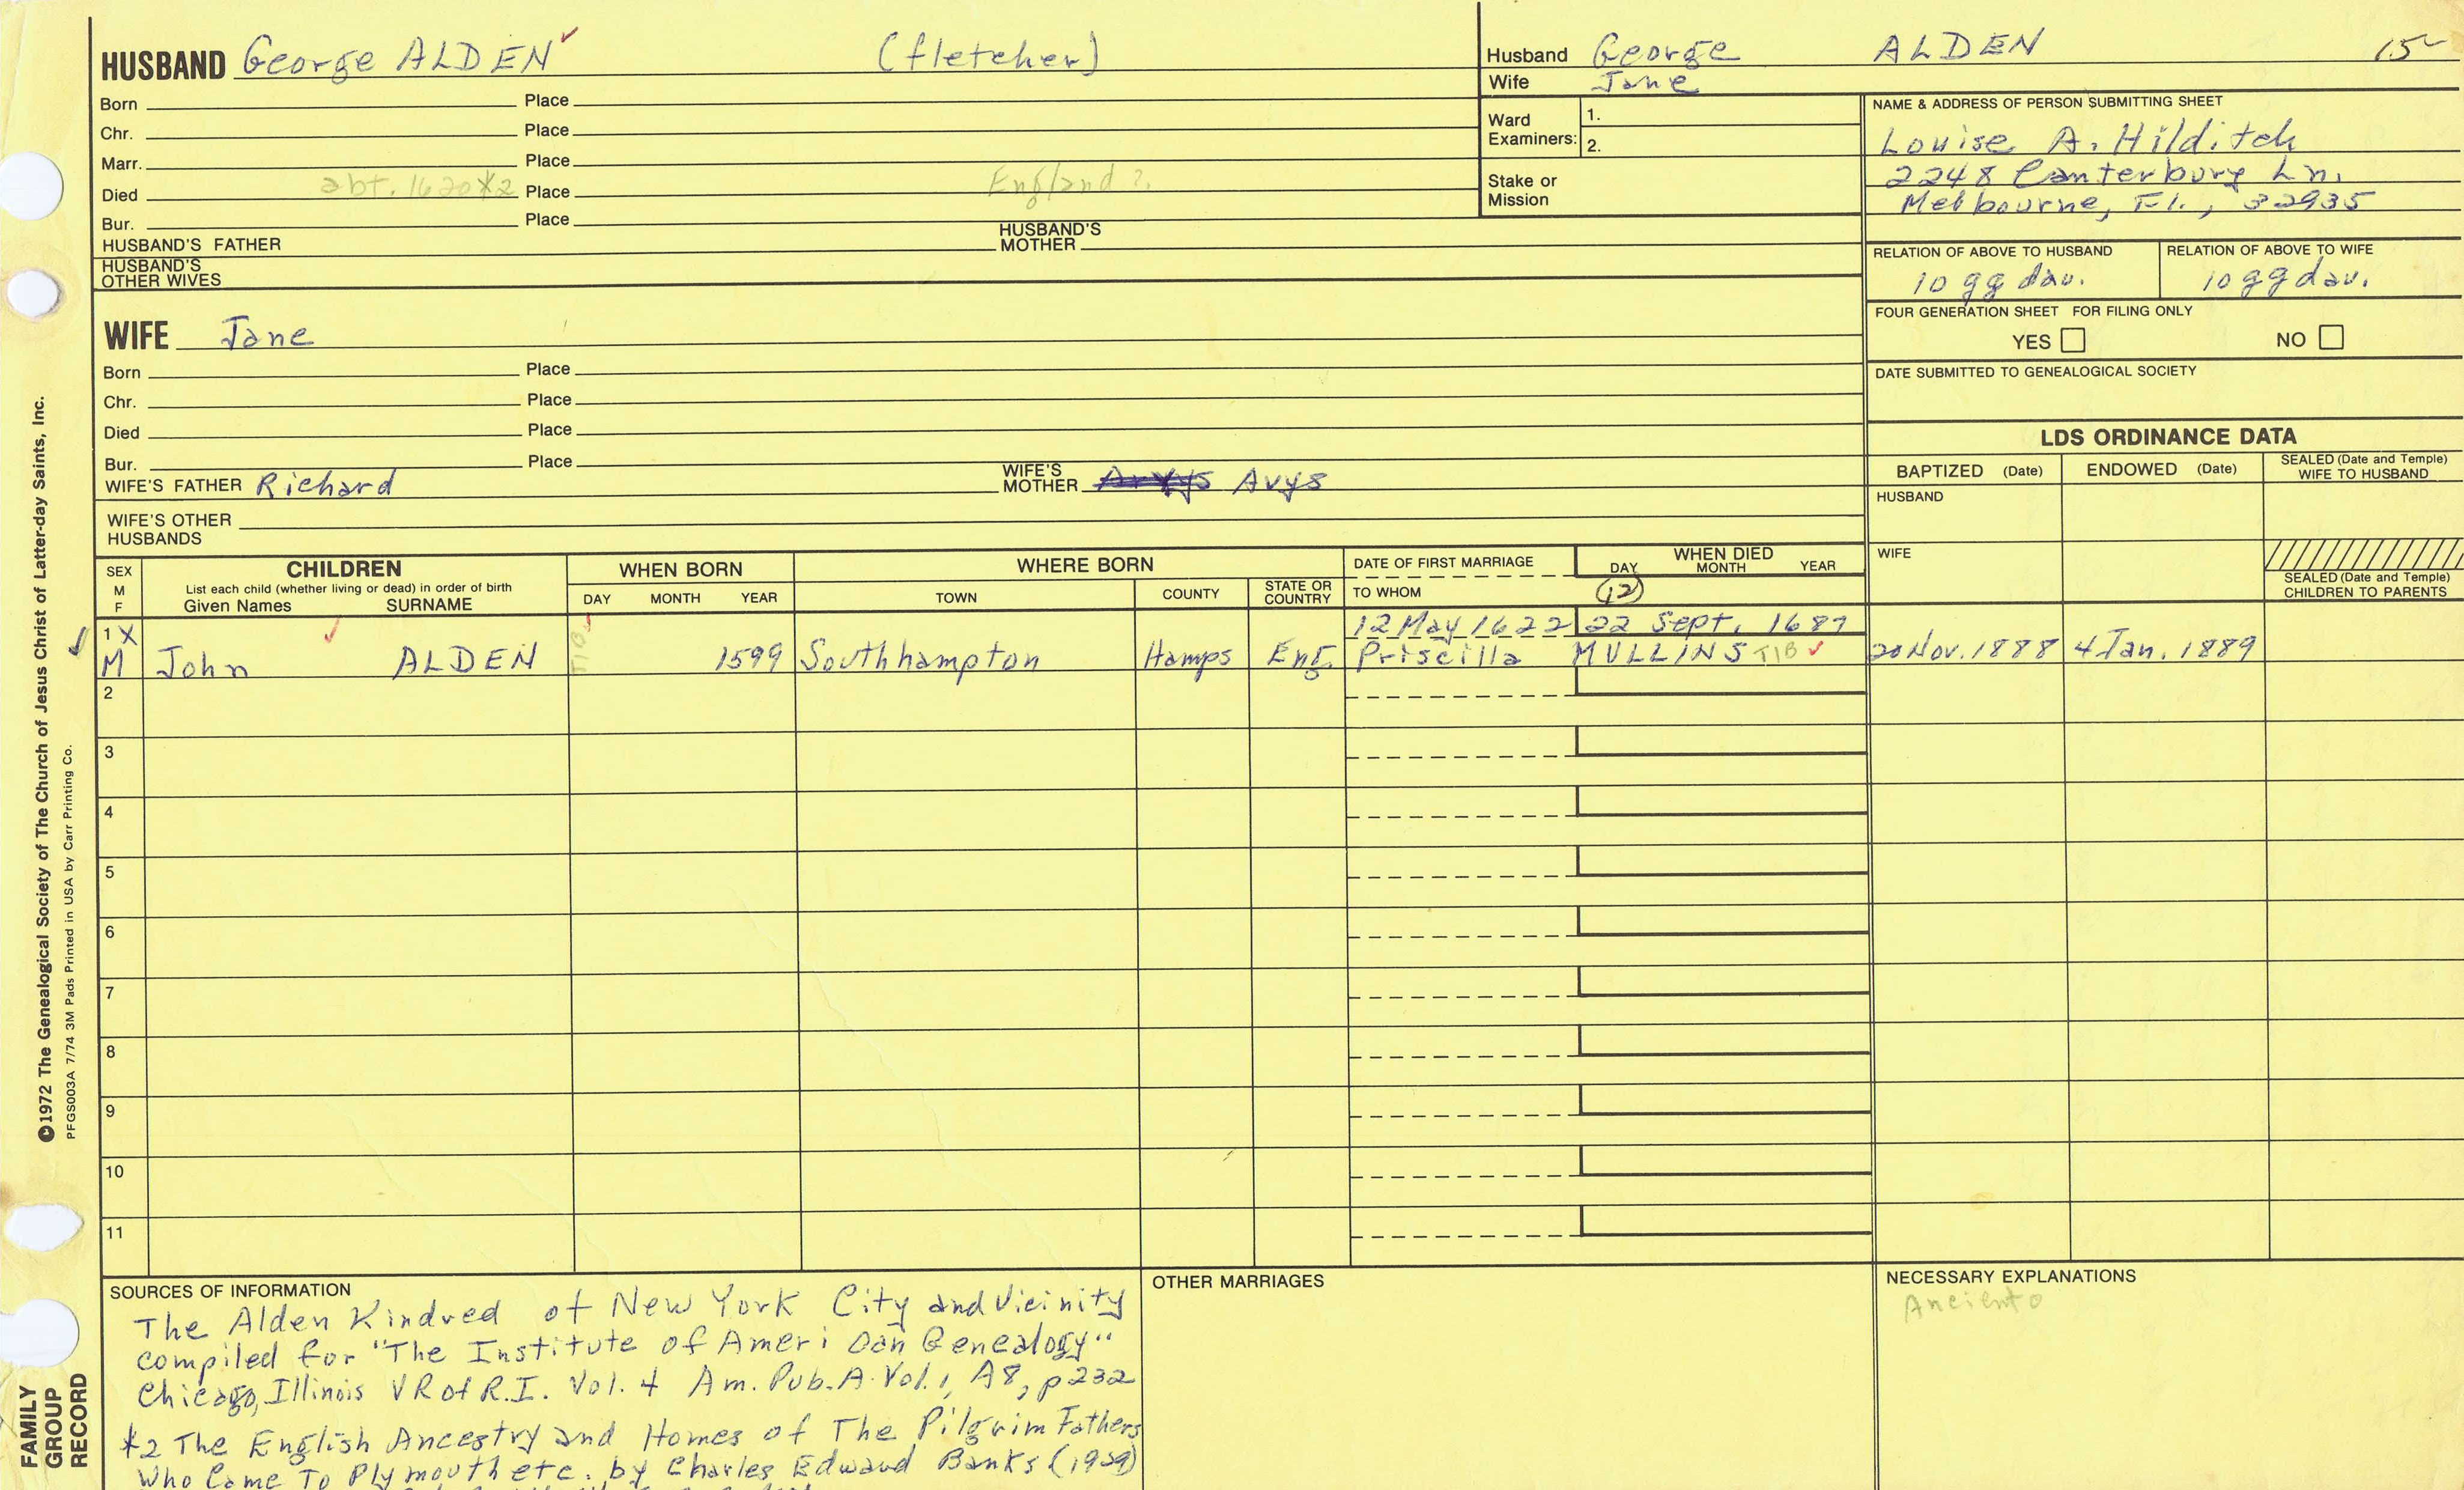 HUSBAND George ALDEN (fletcher)
Born Place
Chr. Place
Marr. Place
Died abt. 1620 *2 Place England?
Bur. Place
HUSBAND'S FATHER HUSBAND'S MOTHER
HUSBAND'S OTHER WIVES
Husband George ALDEN 15
Wife Jane
Ward Examiners: 1.
2.
Stake or Mission
NAME & ADDRESS OF PERSON SUBMITTING SHEET
Louise A. Hilditch
2248 Canterbury Ln.
Melbourne, Fl., 32935
RELATION OF ABOVE TO HUSBAND RELATION OF ABOVE TO WIFE
10 gg dau. 10 gg dau.
FOUR GENERATION SHEET FOR FILING ONLY
YES NO
DATE SUBMITTED TO GENEALOGICAL SOCIETY
WIFE Jane
Born Place
Chr. Place
Died Place
Bur. Place
WIFE'S FATHER Richard WIFE'S MOTHER Avys
WIFE'S OTHER
HUSBANDS
LDS ORDINANCE DATA
BAPTIZED (Date) ENDOWED (Date) SEALED (Date and Temple) WIFE TO HUSBAND
HUSBAND
WIFE
SEALED (Date and Temple)
CHILDREN TO PARENTS
SEX M F
CHILDREN
List each child (whether living or dead) in order of birth
Given Names SURNAME
WHEN BORN
DAY MONTH YEAR
WHERE BORN
TOWN COUNTY STATE OR COUNTRY
DATE OF FIRST MARRIAGE
TO WHOM
WHEN DIED
DAY MONTH YEAR
(12)
1 X 12 May 1622 22 Sept. 1687
M John ALDEN TIB 1599 Southhampton Hamps Eng. Priscilla MULLINS TIB 20 Nov. 1888 4 Jan. 1889
2
3
4
5
6
7
8
9
10
11
SOURCES OF INFORMATION
The Alden Kindred of New York City and Vicinity
compiled for "The Institute of Ameri Can Genealogy"
Chicago, Illinois VR of R.I. Vol. 4 Am. Pub. A. Vol. 1, A8, p 232
*2 The English Ancestry and Homes of The Pilgrim Fathers
Who Came To Plymouth etc. by Charles Edward Banks (1929)
OTHER MARRIAGES
NECESSARY EXPLANATIONS
Anciento
©1972 The Genealogical Society of The Church of Jesus Christ of Latter-day Saints, Inc.
PFGS003A 7/74 3M Pads Printed in USA by Carr Printing Co.
FAMILY
GROUP
RECORD